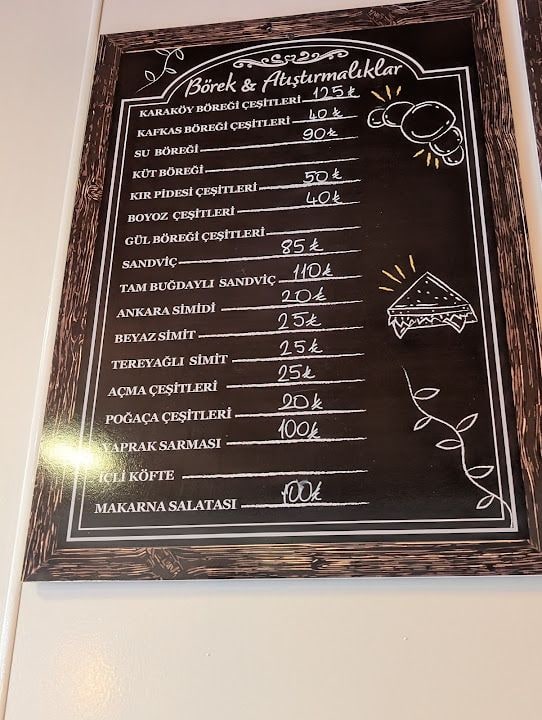 Börek & Atıştırmalıklar
KARAKÖY BÖREĞİ ÇEŞİTLERİ 125₺
KAFKAS BÖREĞİ ÇEŞİTLERİ 40₺
SU BÖREĞİ 90₺
KÜT BÖREĞİ
KIR PİDESİ ÇEŞİTLERİ 50₺
BOYOZ ÇEŞİTLERİ 40₺
GÜL BÖREĞİ ÇEŞİTLERİ
SANDVİÇ 85₺
TAM BUĞDAYLI SANDVİÇ 110₺
ANKARA SİMİDİ 20₺
BEYAZ SİMİT 25₺
TEREYAĞLI SİMİT 25₺
AÇMA ÇEŞİTLERİ 25₺
POĞAÇA ÇEŞİTLERİ 20₺
YAPRAK SARMASI 100₺
İÇLİ KÖFTE
MAKARNA SALATASI 100₺